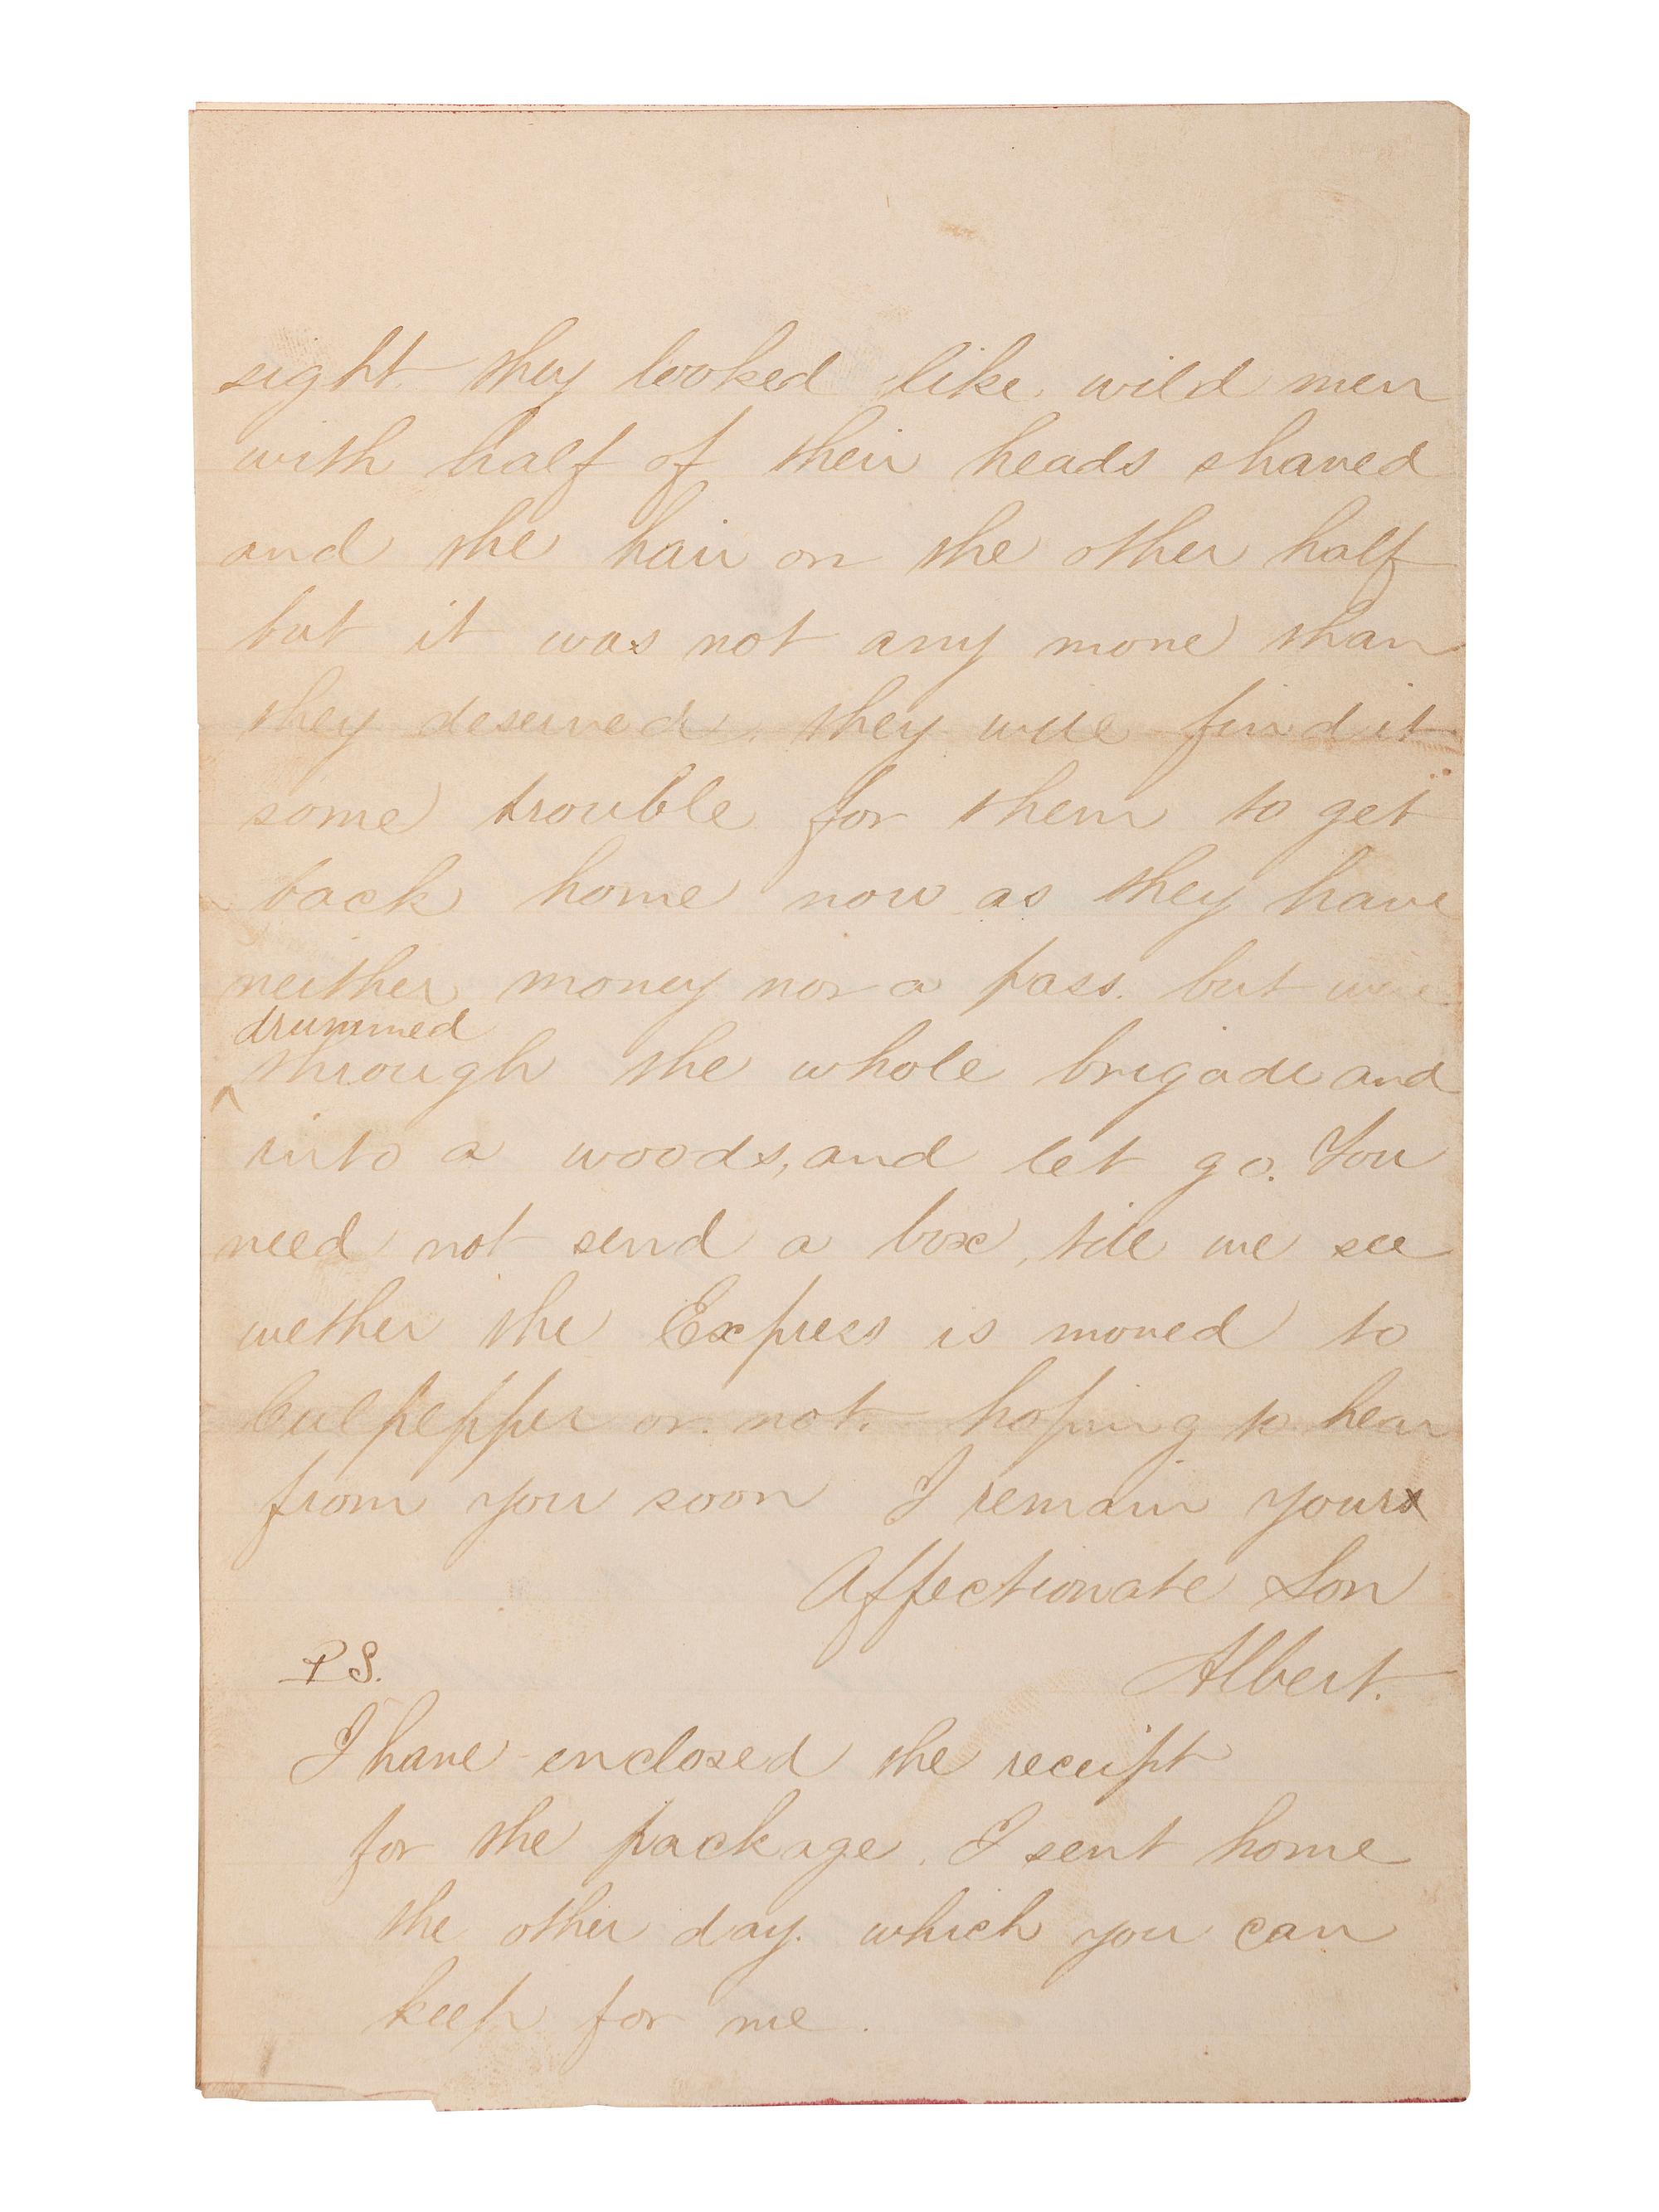 sight. they looked like wild men
with half of their heads shaved
and the hair on the other half
but it was not any more than
they deserved, they will find it
some trouble for them to get
back home now as they have
neither money nor a pass. but were
drummed
^ through the whole brigade and
into a woods, and let go. You
need not send a box, till we see
wether the Express is moved to
Culpepper or not. hoping to hear
from you soon I remain your
Affectionate Son
Albert.
P S.
I have enclosed the receipt
for the package. I sent home
the other day. which you can
keep for me.